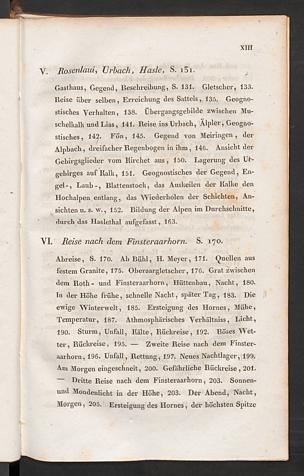 XIII
V. Rosenlaui, Urbach, Hasle, S. 131.
Gasthaus, Gegend, Beschreibung, S. 131. Gletscher, 133.
Reise über selben, Erreichung des Sattels, 135. Geogno-
stisches Verhalten, 138. Übergangsgebilde zwischen Mu-
schelkalk und Lias, 141. Reise ins Urbach, Älpler, Geogno-
stisches, 142. Fön, 145. Gegend von Meiringen, der
Alpbach, dreifacher Regenbogen in ihm, 146. Ansicht der
Gebirgsglieder vom Kirchet aus, 150. Lagerung des Ur-
gebirges auf Kalk, 151. Geognostisches der Gegend, En-
gel-, Laub-, Blattenstock, das Auskeilen der Kalke den
Hochalpen entlang, das Wiederholen der Schichten, An-
sichten u. s. w., 152. Bildung der Alpen im Durchschnitte,
durch das Haslethal aufgefasst, 163.
VI. Reise nach dem Finsteraarhorn. S. 170.
Abreise, S. 170. Ab Bühl, H. Meyer, 171. Quellen aus
festem Granite, 175. Oberaargletscher, 176. Grat zwischen
dem Roth- und Finsteraarhorn, Hüttenbau, Nacht, 180.
In der Höhe frühe, schnelle Nacht, später Tag, 183. Die
ewige Winterwelt, 185. Ersteigung des Hornes, Mühe,
Temperatur, 187. Athmosphärisches Verhältniss, Licht,
190. Sturm, Unfall, Kälte, Rückreise, 192. Böses Wet-
ter, Rückreise, 195. — Zweite Reise nach dem Finster-
aarhorn, 196. Unfall, Rettung, 197. Neues Nachtlager, 199.
Am Morgen eingeschneit, 200. Gefährliche Rückreise, 201.
— Dritte Reise nach dem Finsteraarhorn, 203. Sonnen-
und Mondenlicht in der Höhe, 203. Der Abend, Nacht,
Morgen, 205. Ersteigung des Hornes, der höchsten Spitze